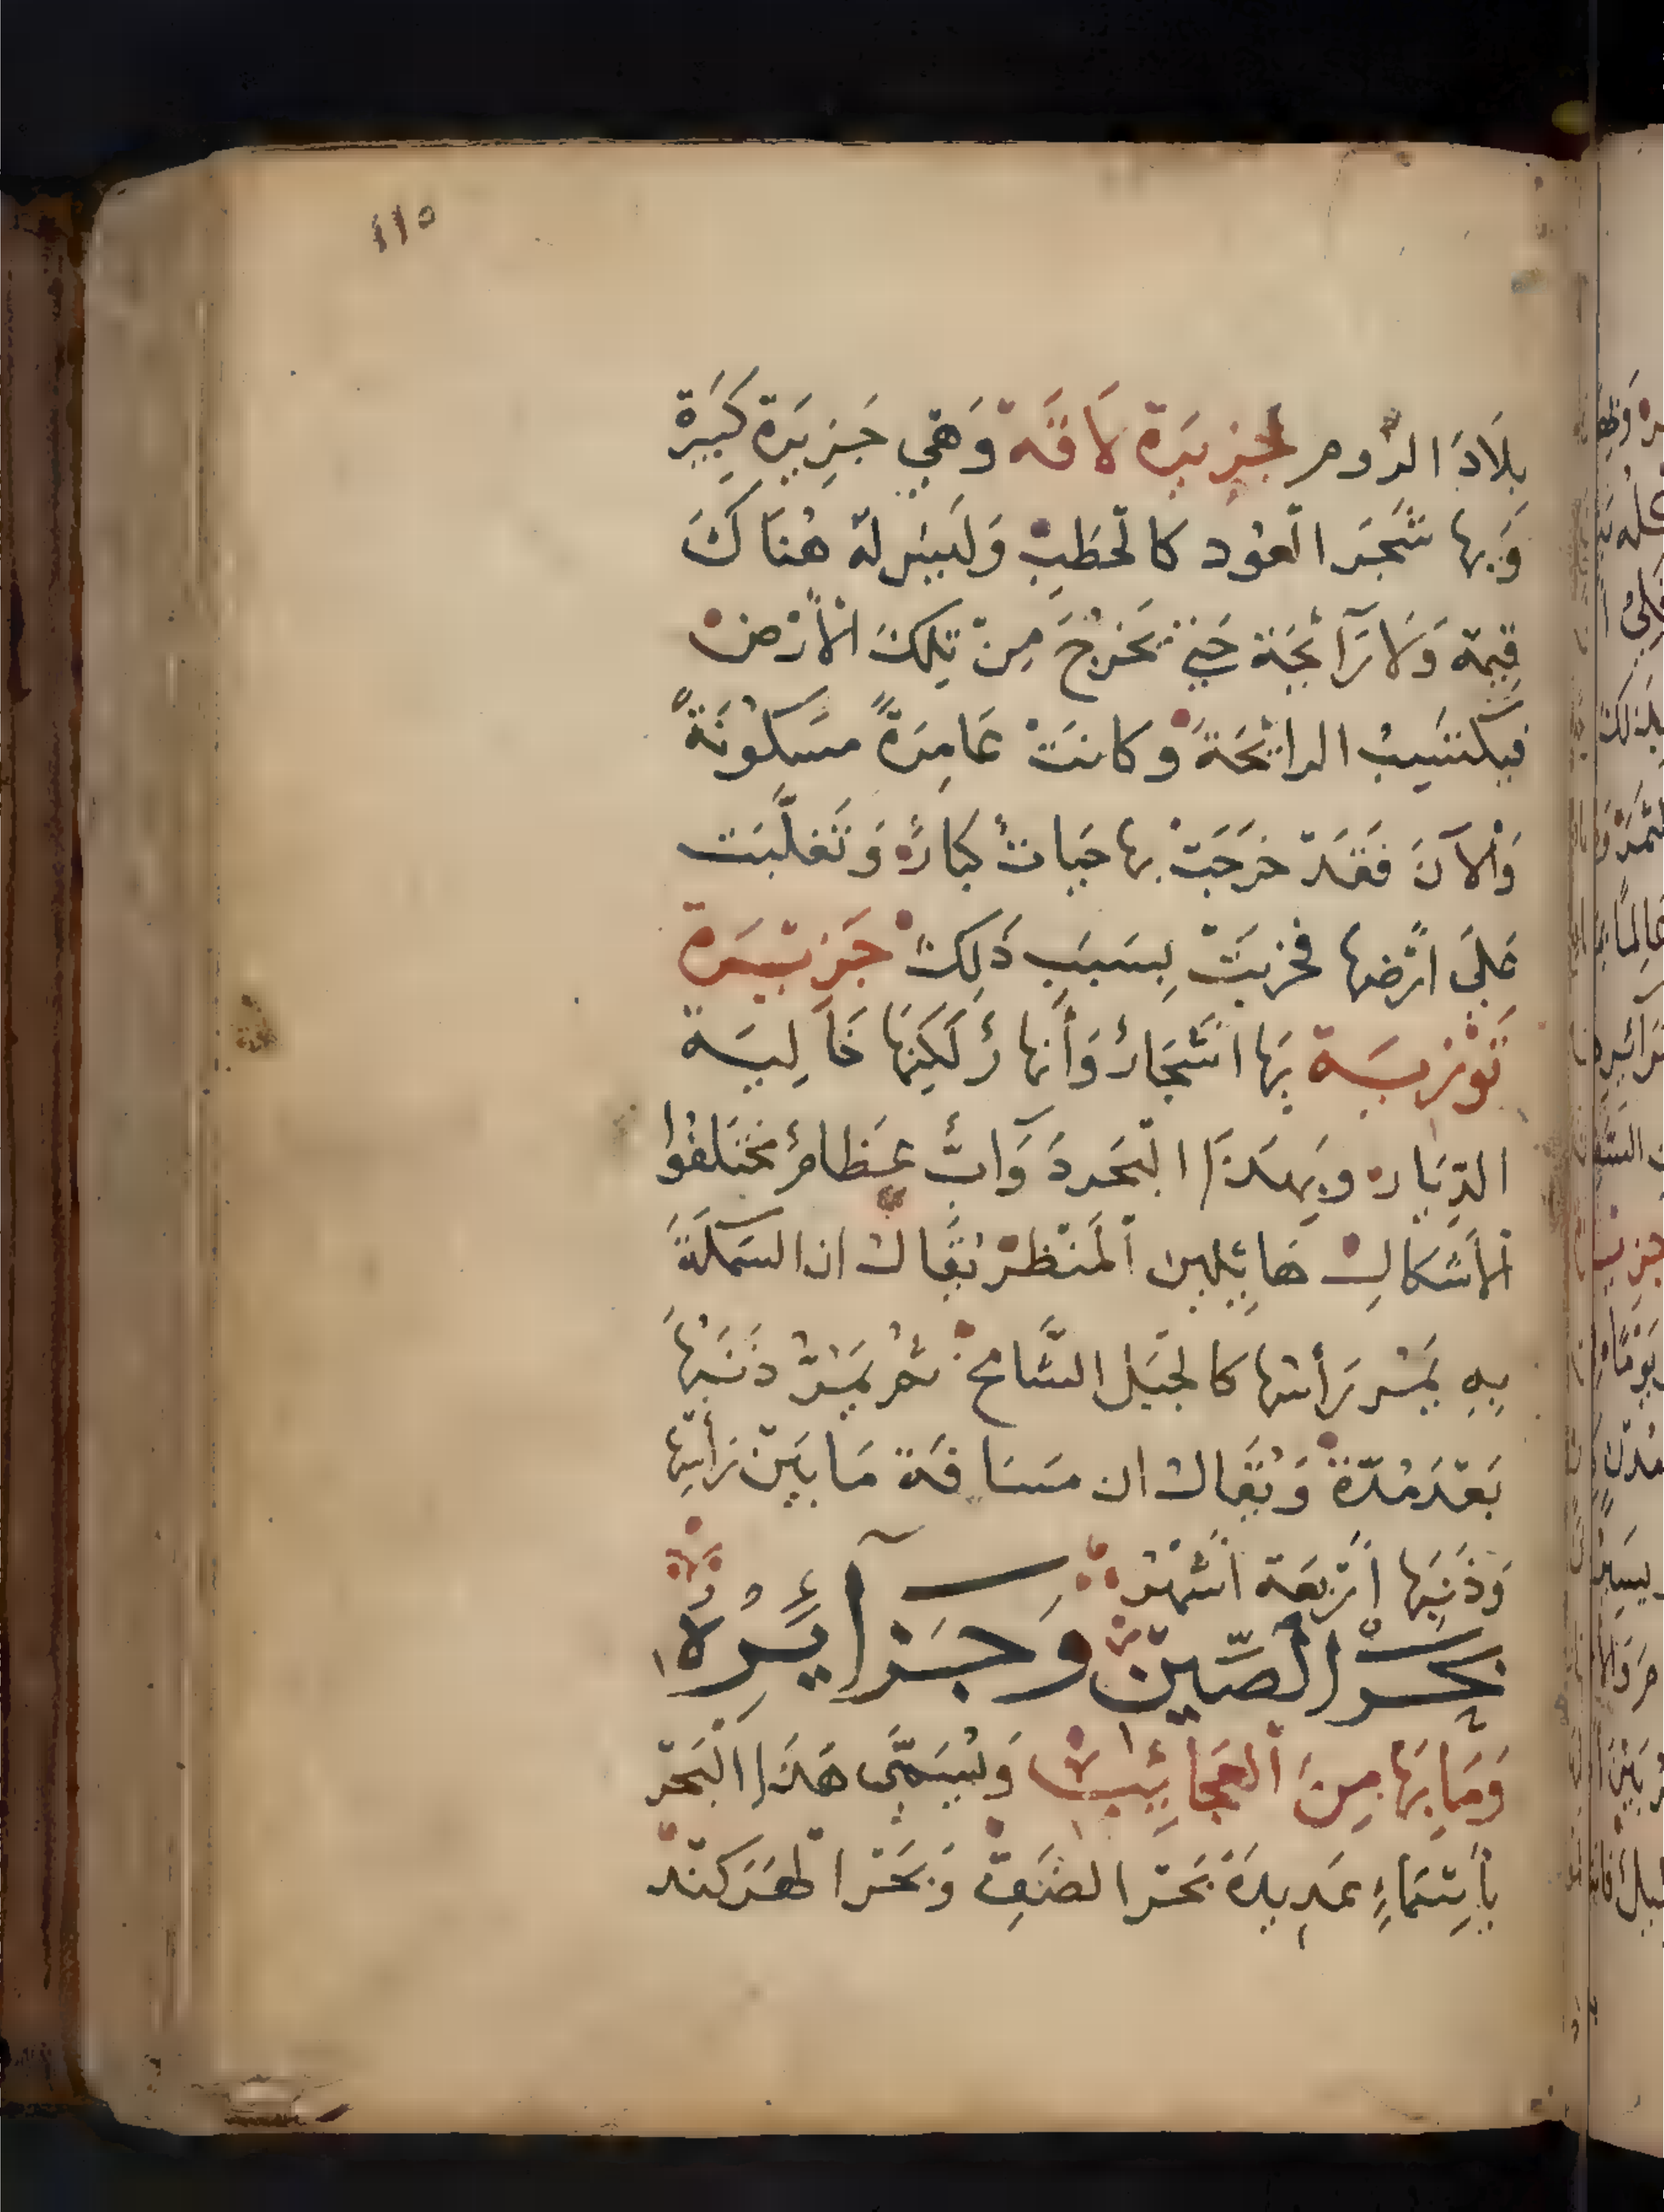 ١١٥
بِلَادَ الرُّوم جَزِيَرة لَاقَة وَهَي جَزِيَرة كَبَيرة
وَبِها شَجَر العُود كالحَطَبِ وَلَيسَ لَه هُنَاكَ
قِيمة وَلَا رَآئحَة حَتى تَخرُجَ مِنْ تِلكَ الأرْضِ
فيكتسَِبُ الرائحَةَ وكانَتْ عَامِرَةً مسَكُونَةً
وَالآنَ فَقَد خرَجَتْ بها حَيات كبارٌ وَتَغلَّبَت
عَلَى ارْضها فخربَتْ بِسَبَبِ ذَلِكَ جَزيَرة
تَوْريَة بِهَا اشَجَارٌ وَأَنهارٌ لَكِنهَا خَالِيَة
الدِيَار وبِهَذَا البَحر دَوَآبٌّ عظامُ مُختَلفُوا
الاشكالِ هَائِلين المَنْظر يُقَال ان السَمكَةَ
بِهِ يَمُر رَأسُها كالجَبَل الشَّامخ ثم يَمُرّ ذَنَبُهَا
بَعْد مُدّة وَيُقَال ان مَسَافَة مَا بَيْن رَأسِها
وَذَنَبِها أرْبَعَة اشْهُر
بحَر الصِّين وَجَزآيِرُهُ
وَمَا بِهَا مِنَ العَجَائِبْ وَيُسَمَّى هَذَا البَحْر
بأسْمَاءٍ عَدِيدَة بَحْر الصَنفِ وَبَحْر الهَركند